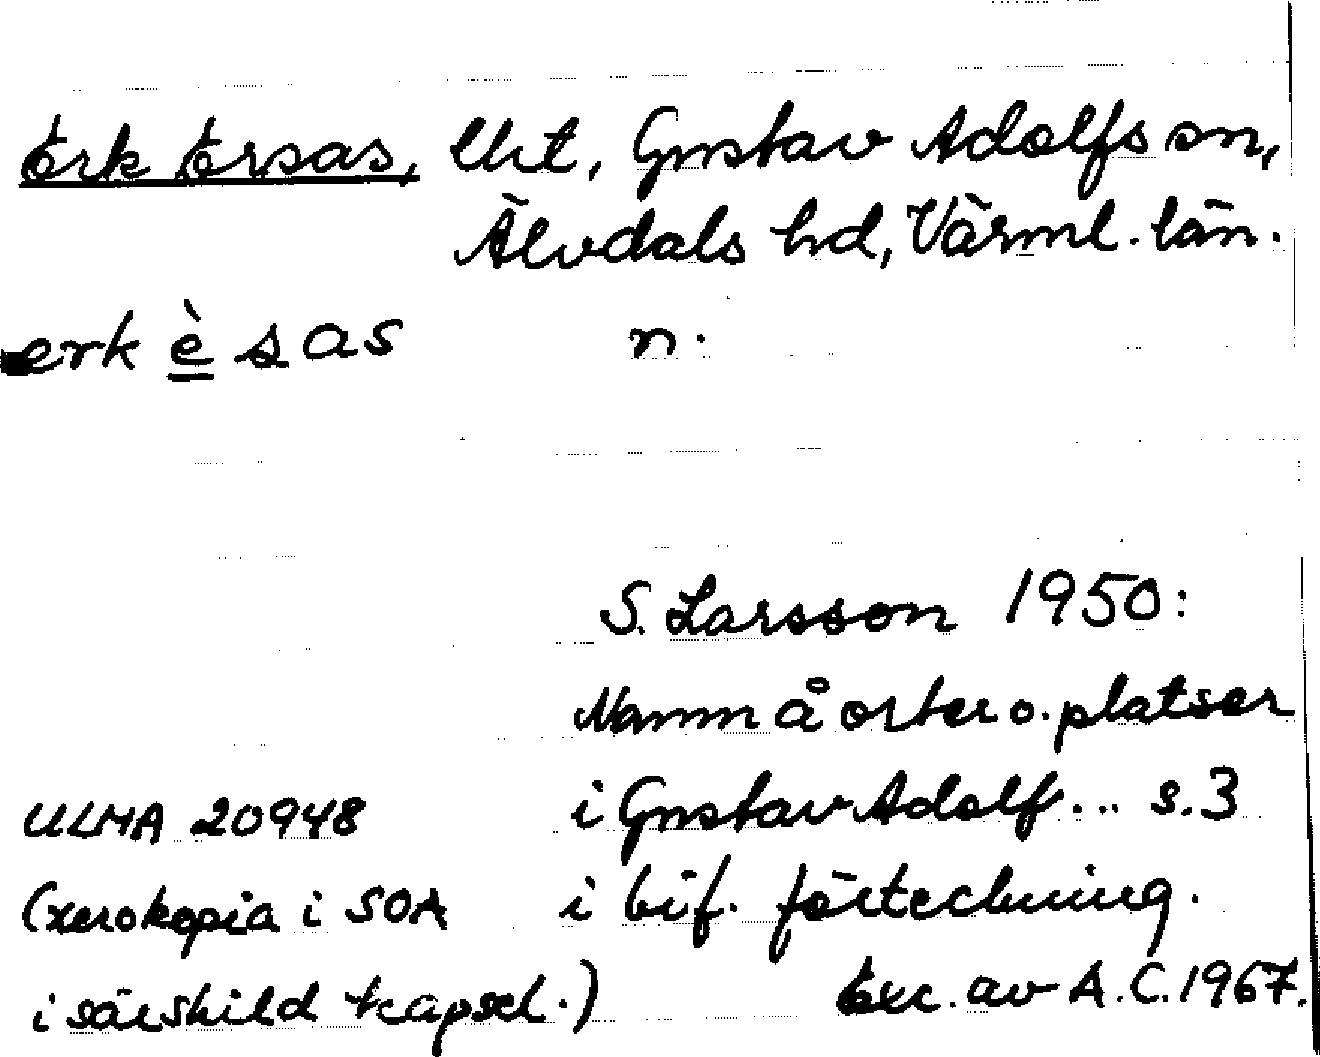 Erk Ersas, lht, Gustav Adolfs sn,
Älvdals hd, Värml. län.
erk è s as n.
S. Larsson 1950:
Namn å orter o. platser
i Gustav Adolf... s. 3
i bif. förteckning.
ULMA 20948
(xerokopia i SOA
i särskild kapsel.)
Exc. av A.C. 1967.